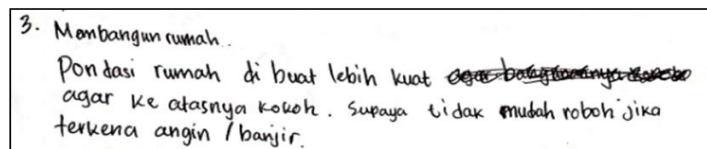 3. Membangun rumah.
Pondasi rumah di buat lebih kuat
agar ke atasnya kokoh. Supaya tidak mudah roboh jika
terkena angin / banjir.